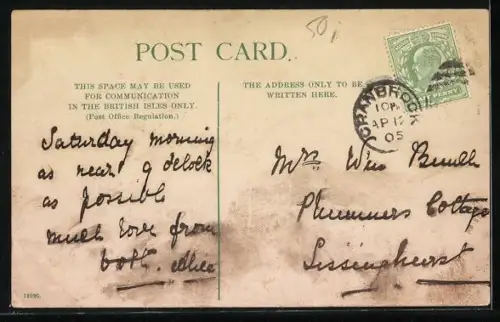 50
POST CARD.
THIS SPACE MAY BE USED
FOR COMMUNICATION
IN THE BRITISH ISLES ONLY.
(Post Office Regulation.)
THE ADDRESS ONLY TO BE
WRITTEN HERE.
CRANBROOK
AP 12
05
Saturday morning
as near 9 o'clock
as possible
much love from
both. Alice
Mrs Wm
Plummers Cottage
Sissinghurst